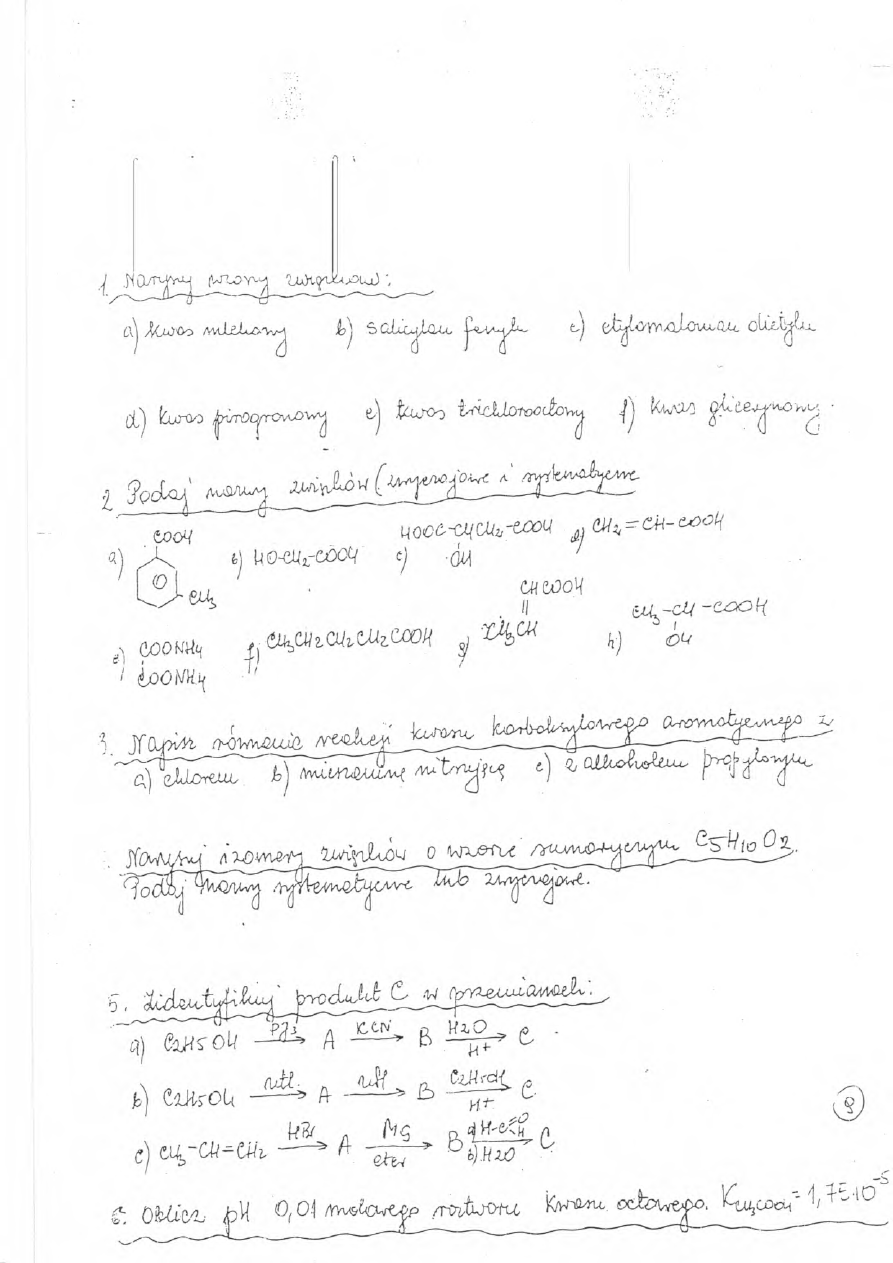 1. Narysuj wzory związków:
a) kwas mlekowy b) salicylan fenylu c) etylomalonian dietylu
d) kwas pirogronowy e) kwas trichlorooctowy f) kwas glicerynowy.
2. Podaj nazwy związków (zwyczajowe i systematyczne
COOH
HOOC-CHCH2-COOH d) CH2=CH-COOH
a) b) HO-CH2-COOH c) OH
CH3
CHCOOH
||
CH3-CH-COOH
e) COONH4 f) CH3CH2CH2CH2COOH g) CH3CH h) OH
COONH4
3. Napisz równanie reakcji kwasu karboksylowego aromatycznego z
a) chlorem b) mieszaniną nitrującą c) z alkoholem propylowym
Narysuj izomery związków o wzorze sumarycznym C5H10O2.
Podaj nazwy systematyczne lub zwyczajowe.
5. Zidentyfikuj produkt C w przemianach:
a) C2H5OH PJ3→ A KCN→ B H2O H+→ C
b) C2H5OH utl.→ A utl→ B C2H5OH H+→ C
c) CH3-CH=CH2 HBr→ A Mg eter→ B a) H-C=O H b) H2O→ C
9
6. Oblicz pH 0,01 molowego roztworu kwasu octowego. KCH3COOH=1,75·10-5